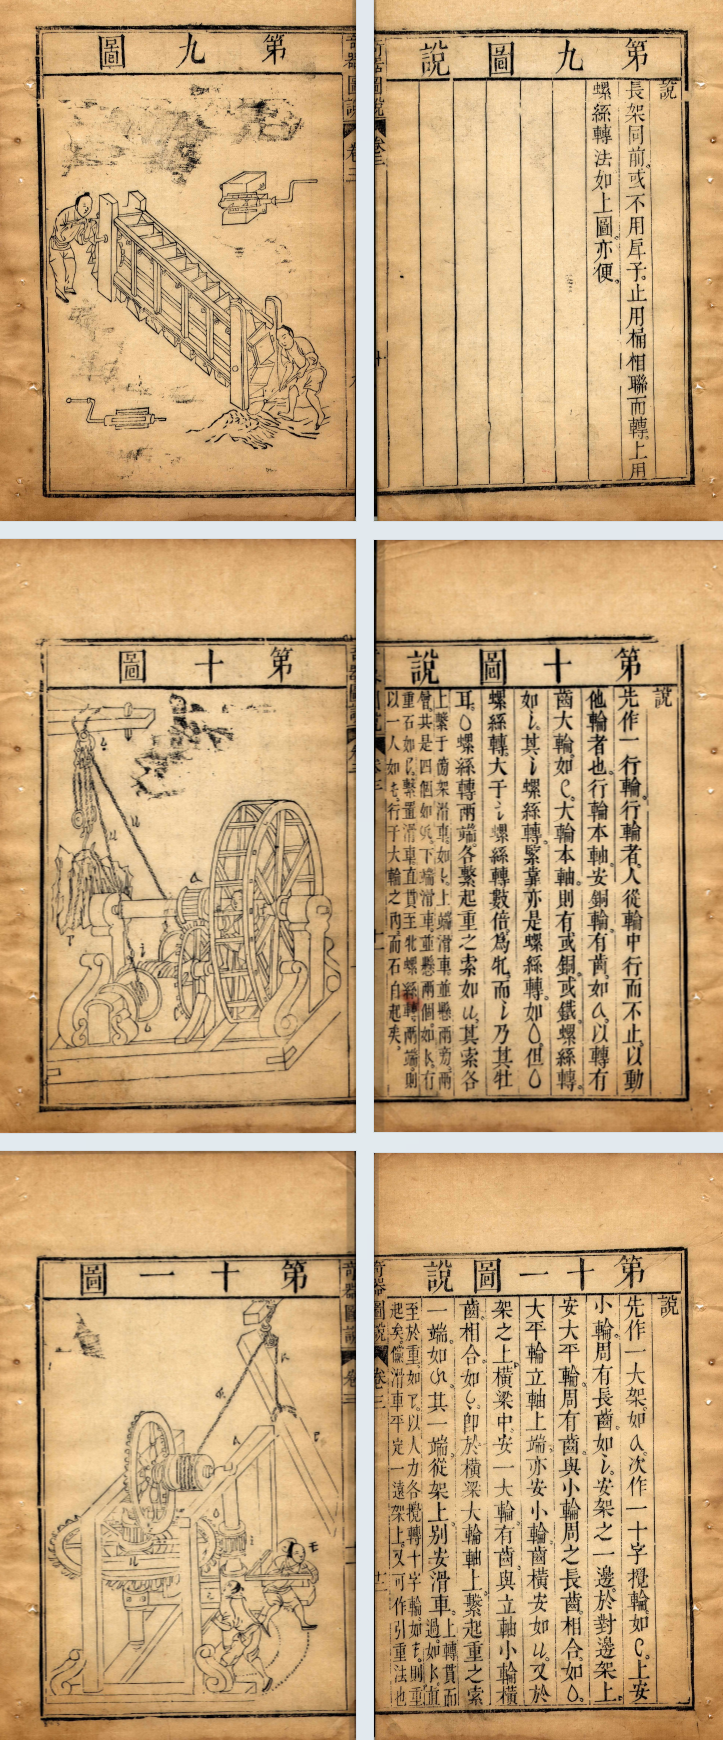 第九圖
奇器圖說
卷三
第九圖說
說
長架同前。或不用戽子。止用桶相聯而轉。上用
螺絲轉法如上圖。亦便。
第十圖
第十圖說
說
先作一行輪。行輪者。人從輪中行而不止。以動
他輪者也。行輪本軸。安銅輪。有齒。如a。以轉有
齒大輪。如e。大輪本軸。則有或銅。或鐵。螺絲轉。
如i。其i螺絲轉。緊靠亦是螺絲轉。如o。但o
螺絲轉。大于i螺絲轉數倍。為牝。而i乃其牡
耳。o螺絲轉兩端。各繫起重之索。如u。其索各
上繫于架滑車。如l。上端滑車並懸兩旁。兩
共是四個。如。下端滑車。並懸兩個。如k。有
重石如r。繫置滑車。直貫至牝螺絲轉。兩端。則
以一人如。行于大輪之內。而石自起矣。
第十一圖
奇器圖說
卷三
第十一圖說
說
先作一大架。如a。次作一十字攪輪。如e。上安
小輪。周有長齒。如i。安架之一邊。於對邊架上
安大平輪。周有齒。與小輪周之長齒。相合。如o。
大平輪立軸上端。亦安小輪。齒橫安。如u。又於
架之上。橫梁中。安一大輪。有齒。與立軸小輪橫
齒相合。如。卽於橫梁大輪軸上。繫起重之索
一端。如。其一端。從架上。別安滑車。上轉貫而
過。如k。直
至於重。如r。以人力各攪轉十字輪。如。則重
起矣。儻滑車平定一遠架上。又可作引重法也